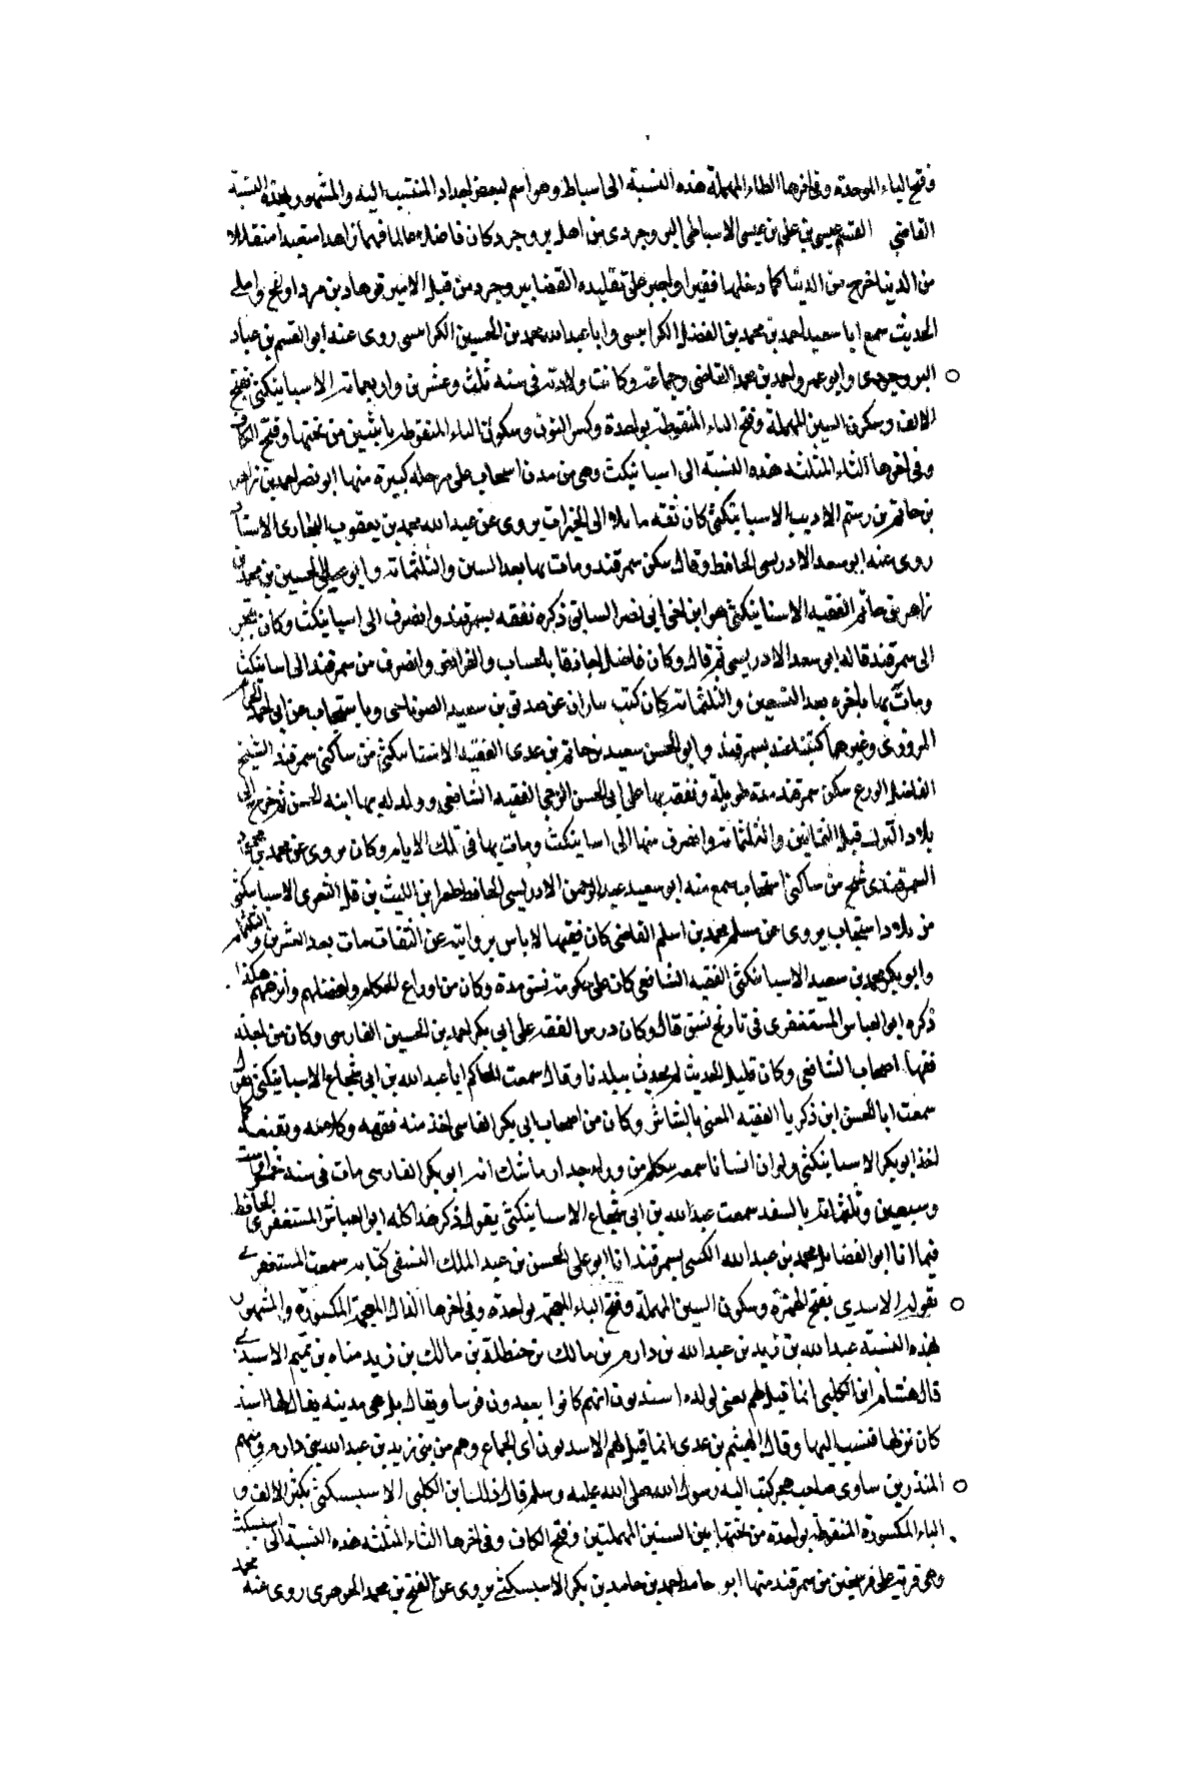 وفتح الباء الموحدة وفي اخرها الطاء المهملة هذه النسبة الى اسباط وهو اسم لبعض اجداد المنتسب اليه والمشهور بهذه النسبة
القاضي القسم عيسى بن على بن عيسى الاسباطى البروجردى من اهل بروجرد كان فاضلا عالما فهما زاهدا متعبدا متقللا
من الدنيا خرج من الدنيا كما دخلها فقيرا واجبر على تقليده القضا ببروجرد من قبل الامير فرهاد بن مرداويج واملى
الحديث سمع ابا سعيد احمد بن محمد بن الفضل الكرابيسى وابا عبدالله محمد بن الحسين الكرابيسى روى عنه ابو القسم بن عباد
البروجردى وابو عمرو احمد بن محمد القاضى وجماعة وكانت ولادته فى سنه ثلث وعشرين واربعمائه الاسبانيكثى بفتح
الالف وسكون السين المهملة وفتح الباء المنقوطة بواحدة وكسر النون وسكون الياء المنقوطه باثنتين من تحتها وفتح الكاف
وفى اخرها الثاء المثلثه هذه النسبة الى اسبانيكث وهى من مدن اسبيجاب على مرحله كبيرة منها ابو نصر احمد بن زاهر
بن حاتم بن رستم الاديب الاسبانيكثى كان ثقه مائلا الى الخيرات يروى عن عبد الله محمد بن يعقوب البخارى الاستاذ
روى عنه ابو سعد الادريسى الحافظ وقال سكن سمرقند ومات بها بعد الستين والثلثمائه وابو على الحسين بن محمد بن
زاهر بن حاتم الفقيه الاسبانيكثى هو ابن اخى ابى نصر السابق ذكره تفقه بسمرقند وانصرف الى اسبانيكث وكان يتجر
الى سمرقند قاله ابو سعد الادريسى ثم قال وكان فاضلا حاذقا بالحساب والفرائض وانصرف من سمرقند الى اسبانيكث
ومات بها باخره بعد التسعين والثلثمائه كان كتب عن صدقة بن سعيد وباسبيجاب عن ابى احمد
المروزى وغيرهما كتبت عنه بسمرقند وابو الحسن سعيد بن حاتم بن عدى الفقيه الاسبانيكثى من ساكنى سمرقند الشيخ
الفاضل الورع سكن سمرقند مدة طويلة وتفقه بها على ابى الحسن الفقيه الشافعى وولد له بها ابنه الحسن ثم خرج الى
بلاد الترك قبل الثمانين والثلثمائه وانصرف منها الى اسبانيكث ومات بها فى تلك الايام وكان يروى عن محمد بن
السمرقندى شيخ من ساكنى اسبيجاب سمع منه ابو سعيد عبد الرحمن الادريسى الحافظ بن الليث بن الاسبانيكثى
من بلاد اسبيجاب يروى عن مسلم محمد بن اسلم القاضى كان فقيها لا باس بروايته عن الثقات مات بعد العشرين والثلثمائه
وابو بكر محمد بن سعيد الاسبانيكثى الفقيه الشافعى كان على حكومة نسف مدة وكان من اوراع الحكام وافضلهم وانزههم هكذا
ذكره ابو العباس المستغفرى فى تاريخ نسف قال وكان درس الفقه على ابى بكر احمد بن الحسين الفارسى وكان من اجلة
فقهاء اصحاب الشافعى وكان قليل الحديث لم يحدث ببلدنا وقال سمعت الحاكم ابا عبد الله بن ابى شجاع الاسبانيكثى يقول
سمعت ابا الحسن ابن زكريا الفقيه المعنى بالشاش وكان من اصحاب ابى بكر الفارسى اخذ منه فقهه وكلامه
اخذ ابو بكر الاسبانيكثى ولو ان انسانا سمعه يتكلم من وراء جدار ما شك انه ابو بكر الفارسى مات فى سنه خمس او ست
وسبعين وثلثمائه بالسغد سمعت عبد الله بن ابى شجاع الاسبانيكثى يقول ذكر هذا كله ابو العباس المستغفرى الحافظ
فيما انا ابو الفضايل محمد بن عبد الله الكسى بسمرقند انا ابو على الحسن بن عبد الملك النسفى كتابه سمعت المستغفرى
بقوله الاسبذى بفتح الهمزة وسكون السين المهملة وفتح الباء المعجمة بواحدة وفى اخرها الذال المعجمة المكسورة والمشهور
بهذه النسبة عبد الله بن زيد بن عبد الله بن دارم بن مالك بن حنظلة بن مالك بن زيد مناه بن تميم الاسبذى
قال هشام ابن الكلبى انما قيل لهم يعنى لولده اسبذيون انهم كانوا يعبدون فرسا ويقال بل هى مدينه يقال لها اسبذ
كان نزلها فنسب اليها وقال الهيثم بن عدى انما قيل لهم الاسبذيون اى الجماع وهم من بنى زيد بن عبد الله بن دارم ومنهم
المنذر بن ساوى صاحب هجر كتب اليه رسول الله صلى الله عليه وسلم قال ذلك ابن الكلبى الاسبسكثى بكسر الالف و
الباء المكسورة المنقوطه بواحدة من تحتها بين السينين المهملتين وفتح الكاف وفى اخرها الثاء المثلثه هذه النسبة الى اسبسكث
وهى قرية على فرسخين من سمرقند منها ابو حامد احمد بن حامد بن بكر الاسبسكثى يروى عن الفتح بن محمد الجوهرى روى عنه محمد